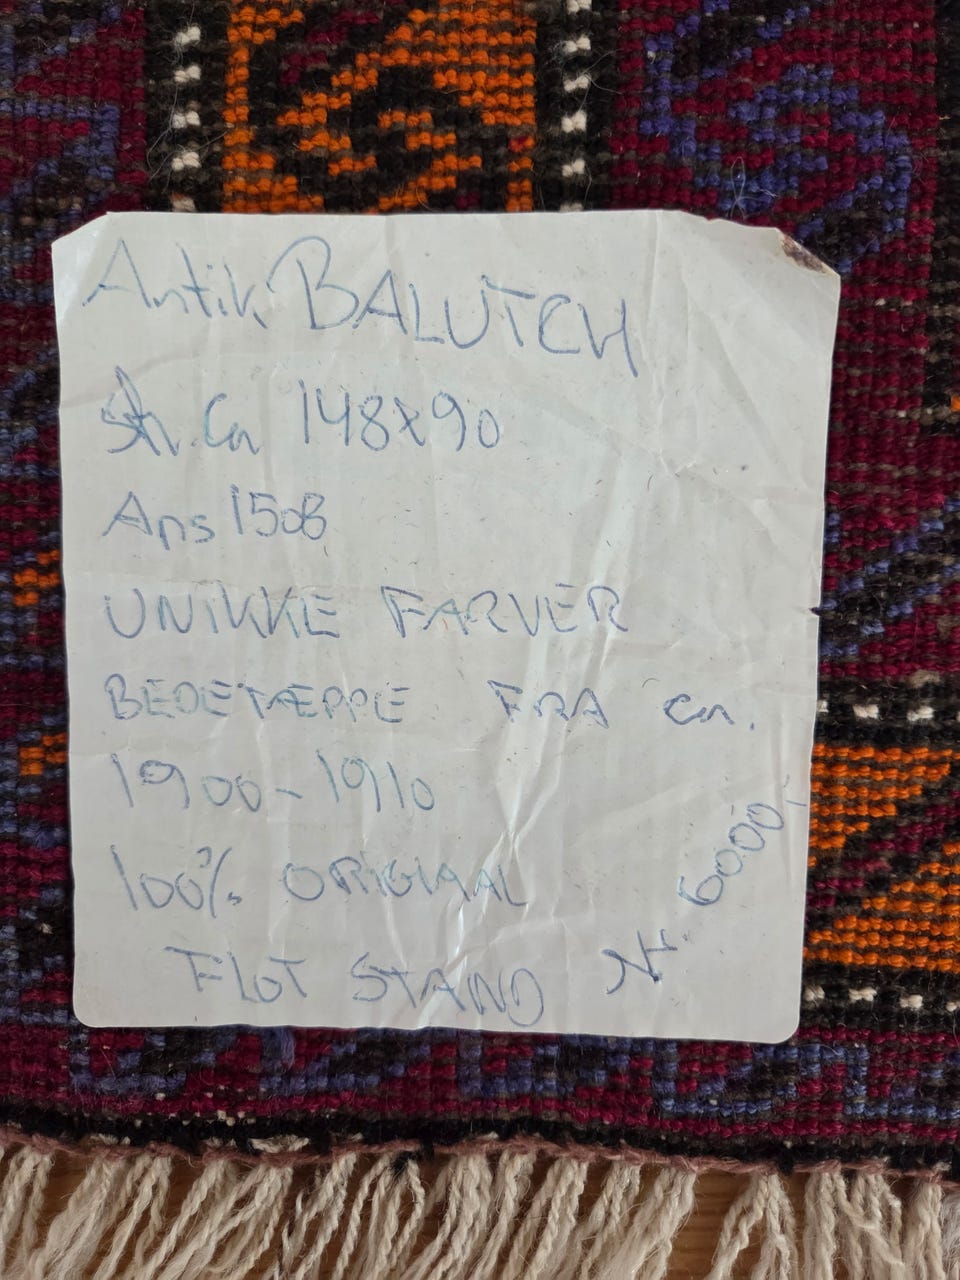 Antik BALUTCH
Str Ca 148x90
Ans 1508
UNIKKE FARVER
BEDETÆPPE FRA Ca.
1900-1910
100% ORIGINAL
FLOT STAND
6000,-